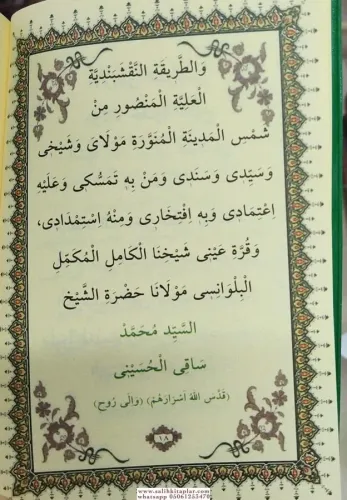 وَالطَّرِيقَةِ النَّقْشَبَنْدِيَّةِ
الْعَلِيَّةِ الْمَنْصُورِ مِنْ
شَمْسِ الْمَدِينَةِ الْمُنَوَّرَةِ مَوْلَاىَ وَشَيْخِى
وَسَيِّدِى وَسَنَدِى وَمَنْ بِهِ تَمَسُّكِى وَعَلَيْهِ
اِعْتِمَادِى وَبِهِ اِفْتِخَارِى وَمِنْهُ اِسْتِمْدَادِى،
وَقُرَّةِ عَيْنِى شَيْخِنَا الْكَامِلِ الْمُكَمِّلِ
الْبِلْوَانِسِى مَوْلَانَا حَضْرَةِ الشَّيْخِ
السَّيِّدْ مُحَمَّدْ
سَاقِى الْحُسَيْنِى
(قَدَّسَ اللّٰهُ اَسْرَارَهُمْ) (وَالَى رُوحِ)
١٨
www.salihkitaplar.com
whatsapp 05061255470